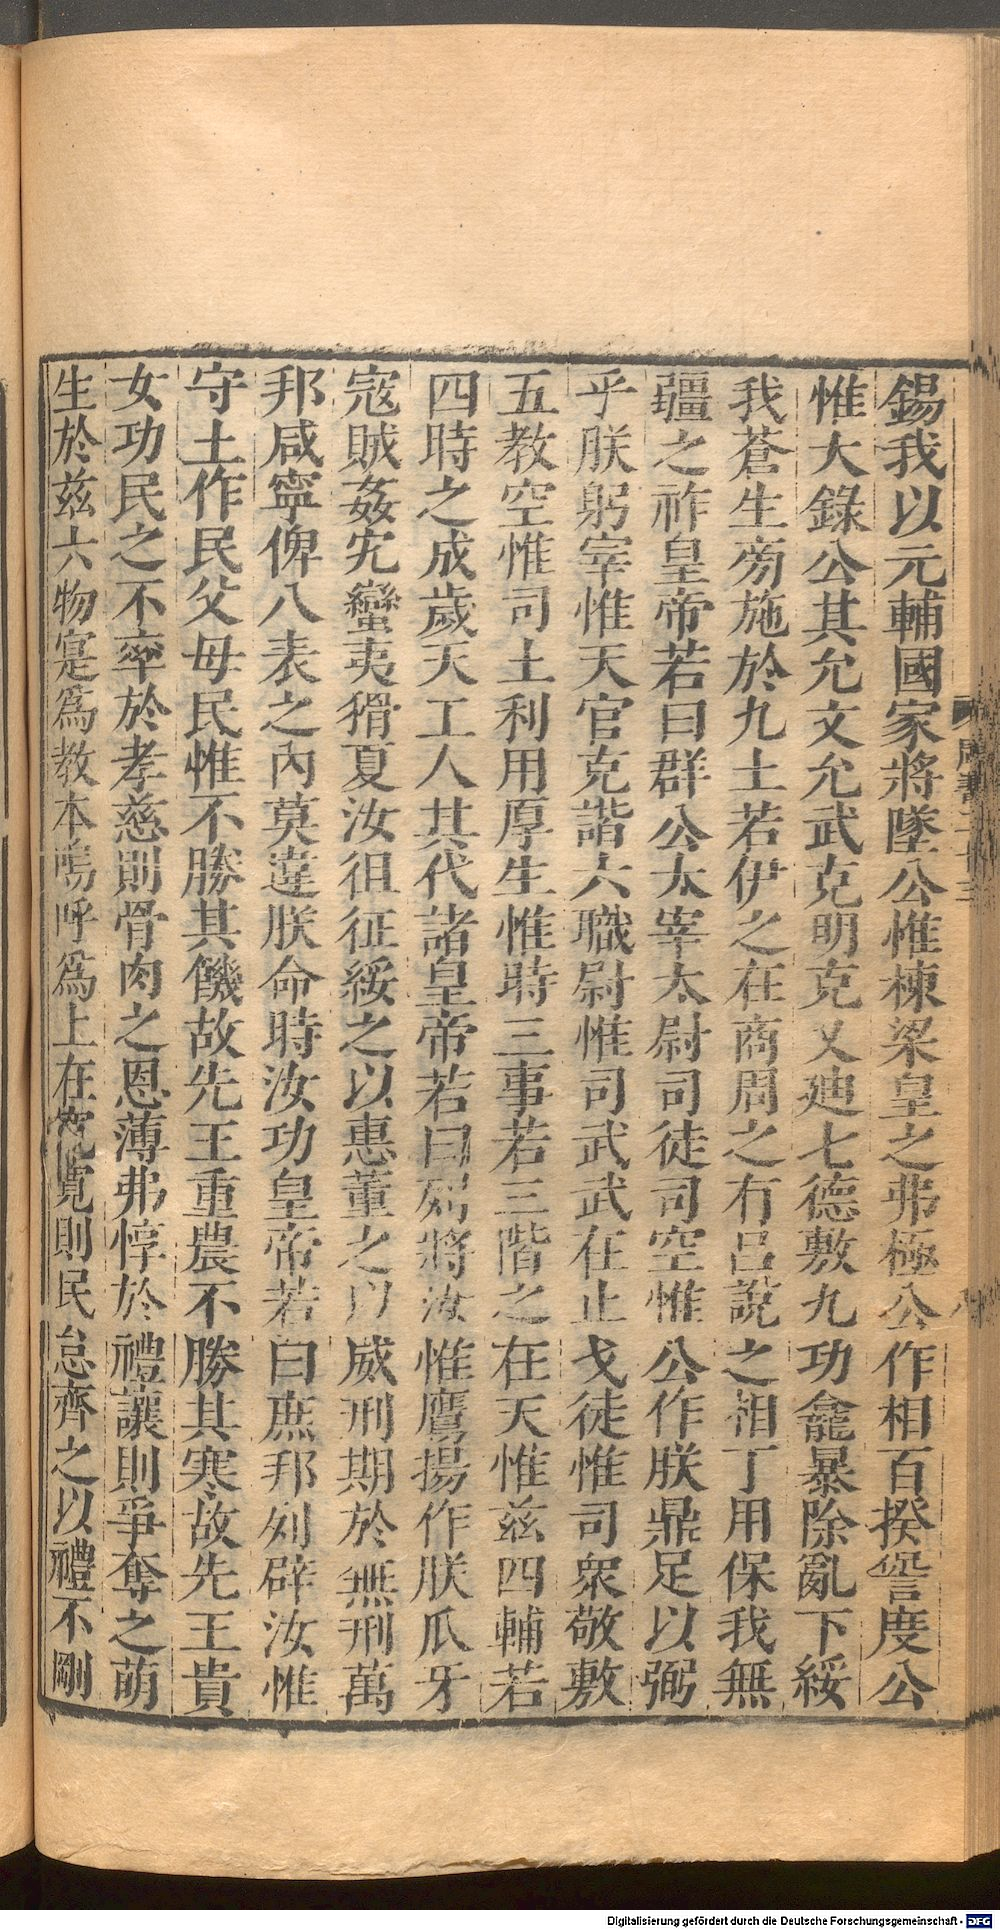 錫我以元輔國家將墜公惟棟梁皇之弗極公作相百揆諐度公
惟大錄公其允文允武克明克乂迪七德敷九功龕暴除亂下綏
我蒼生旁施於九土若伊之在商周之有呂說之相丁用保我無
疆之祚皇帝若曰群公太宰太尉司徒司空惟公作朕鼎足以弼
乎朕躬宰惟天官克諧六職尉惟司武武在止戈徒惟司衆敬敷
五教空惟司土利用厚生惟時三事若三階之在天惟茲四輔若
四時之成歲天工人其代諸皇帝若曰列將汝惟鷹揚作朕爪牙
寇賊姦宄蠻夷猾夏汝徂征綏之以惠董之以威刑期於無刑萬
邦咸寧俾八表之內莫違朕命時汝功皇帝若曰庶邦列辟汝惟
守土作民父母民惟不勝其饑故先王重農不勝其寒故先王貴
女功民之不率於孝慈則骨肉之恩薄弗惇於禮讓則爭奪之萌
生於茲六物寔爲教本嗚呼爲上在寬寬則民怠齊之以禮不剛
周書
Digitalisierung gefördert durch die Deutsche Forschungsgemeinschaft - DFG